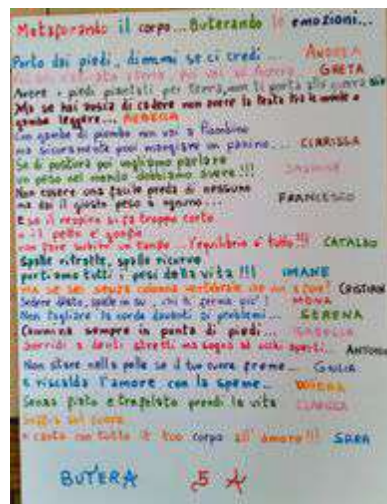 Metaforando il corpo... Buterando le emozioni...
Parto dai piedi, dimmi se ci credi... ANDREA
GRETA
Avere i piedi piantati per terra, non ti porta alla guerra
Ma se hai paura di cadere non avere la testa tra le nuvole e
gambe leggere... REBECCA
Con gambe di piombo non vai a Piombino
ma sicuramente puoi mangiare un panino... CLARISSA
Se di postura poi vogliamo parlare
un peso nel mondo dobbiamo avere!!! JASMINE
Non essere una facile preda di nessuno
ma dai il giusto peso a ognuno... FRANCESCO
E se il respiro si fa troppo corto
e il petto è gonfio
non fare subito un tonfo... l'equilibrio è tutto!!! CATALDO
Spalle ritratte, spalle ricurve
portiamo tutti i pesi della vita!!! IMANE
ma se sei senza colonna vertebrale CRISTIAN
Sedere dritto, spalle in su... chi ti ferma più? MONA
Non tagliare la corda davanti ai problemi... SERENA
Cammina sempre in punta di piedi...
Sorridi a denti stretti ma sogna ad occhi aperti... ANTONIO
Non stare nella pelle se il tuo cuore freme... GIULIA
e riscalda l'amore con la speme...
Senza fiato e trafelato prendi la vita CLARISSA
e canta con tutto il tuo corpo all'amore!!! SARA
BUTERA 5 A